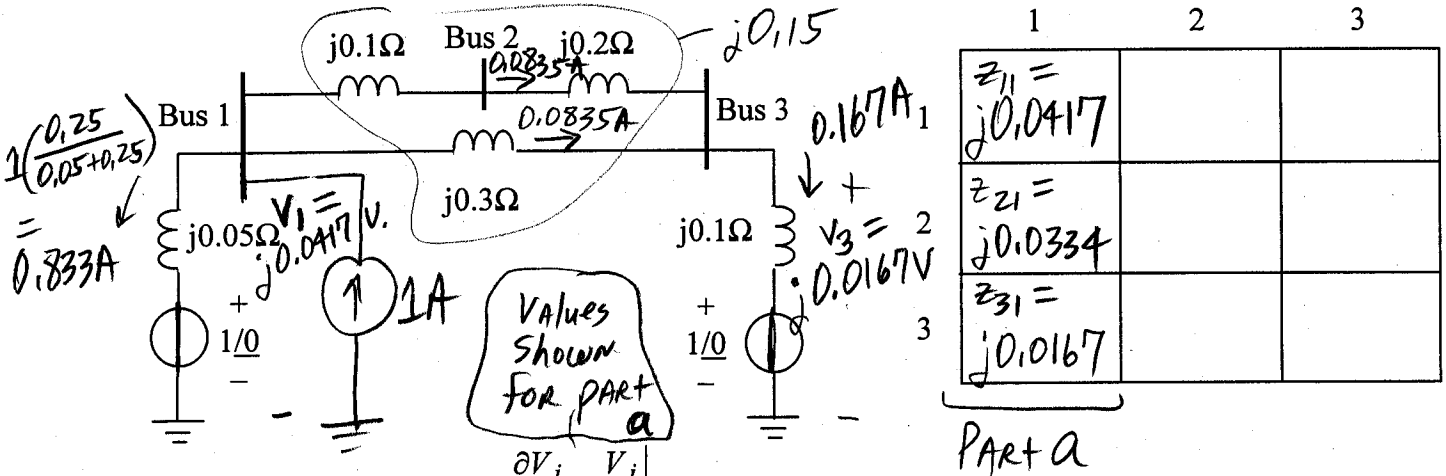 j0.1Ω
Bus 2
j0.2Ω
j0.15
0.0835A
Bus 1
0.0835A
Bus 3
j0.3Ω
1(0.25/0.05+0.25)
=
0.833A
j0.05Ω
V1 =
j0.0417 V.
1A
1/0
+
-
-
Values
shown
for part
a
0.167A
+
j0.1Ω
V3 =
j0.0167V
+
1/0
-
-
∂Vi Vi|
1 2 3
1
z11 =
j0.0417
2
z21 =
j0.0334
3
z31 =
j0.0167
Part a